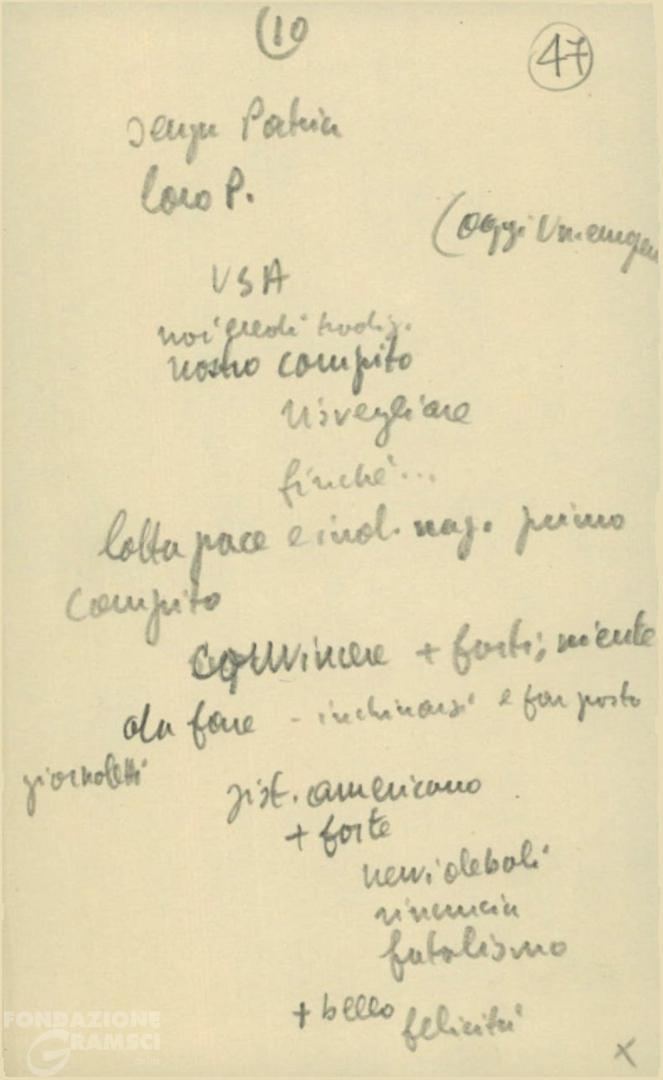 (10
47
senza Patria
loro P.
(oggi
USA
noi eredi tradiz.
nostro compito
risvegliare
finché...
lotta pace e ind. naz. primo
compito
convincere + forti; niente
da fare - inchinarsi e far posto
giornaletti
sist. americano
+ forte
nervi deboli
rinuncia
fatalismo
+ bello felicità
x
FONDAZIONE
GRAMSCI